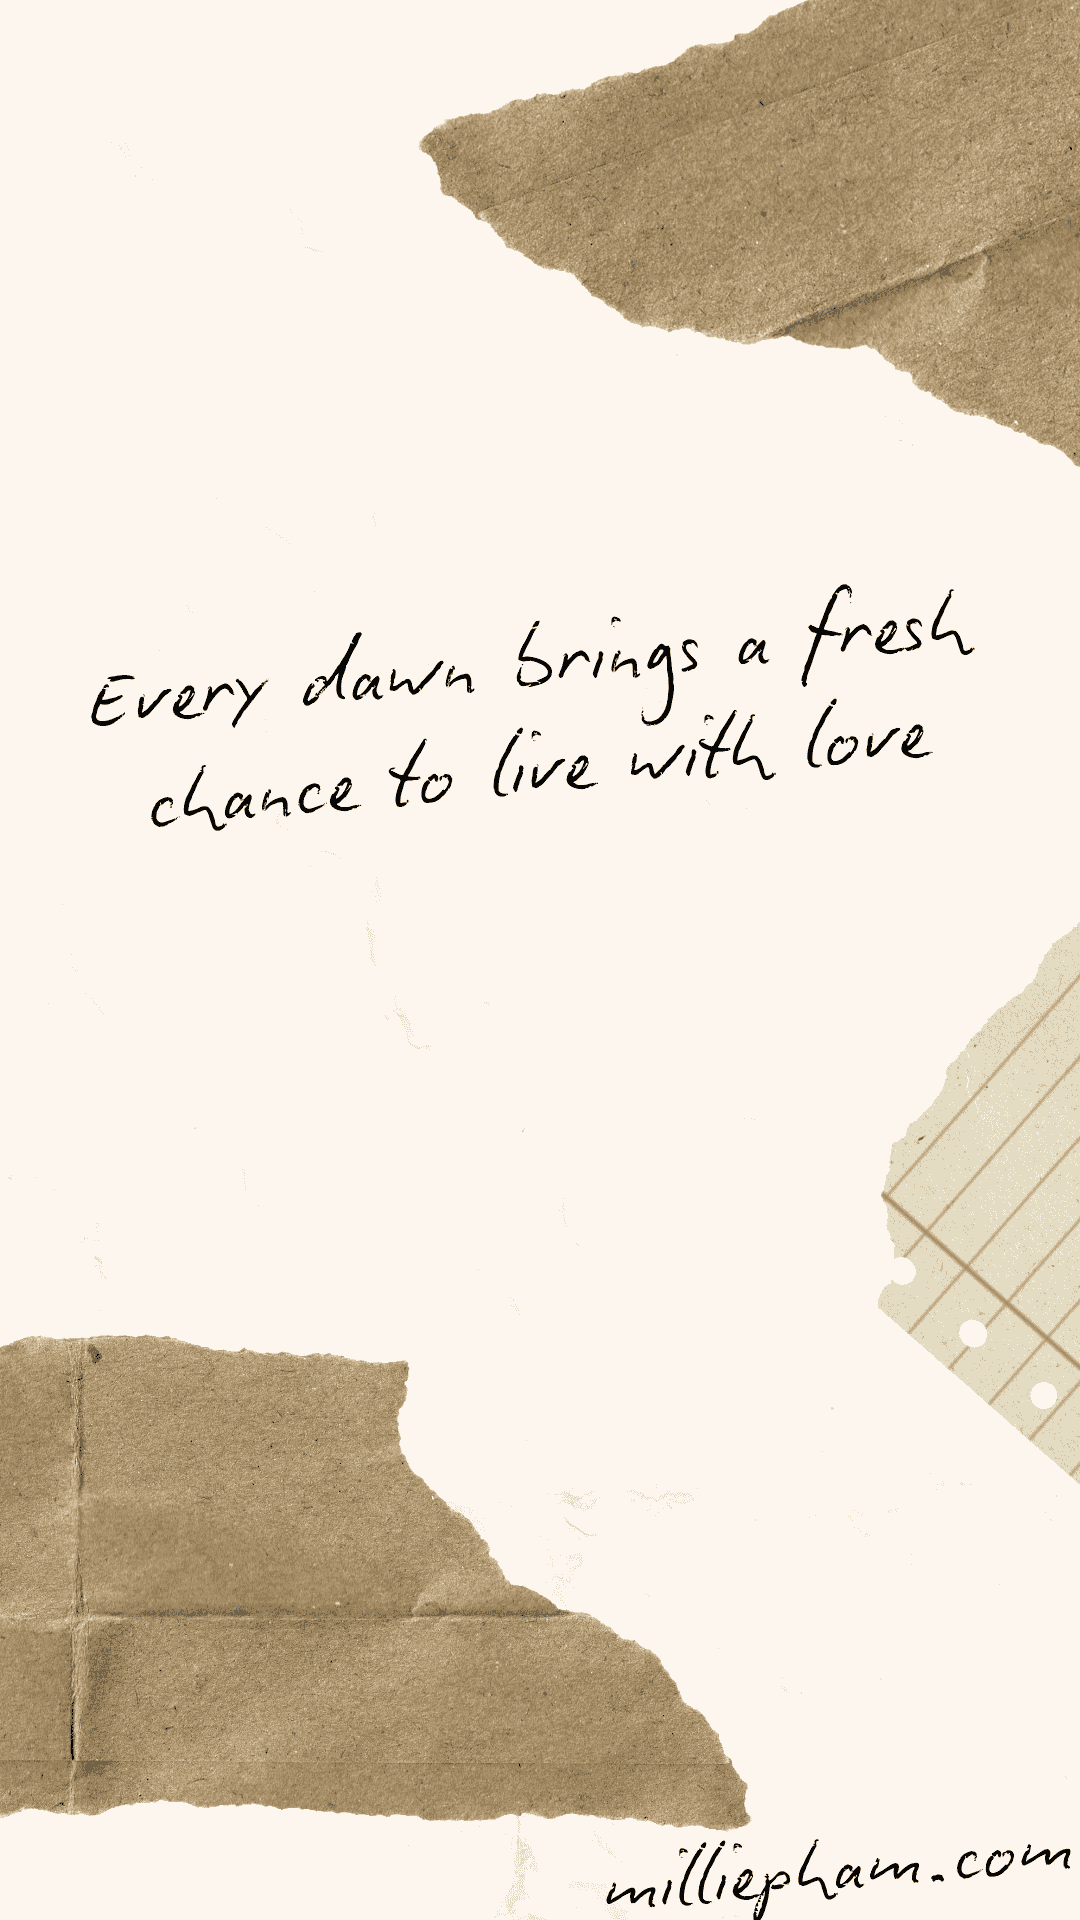 Every dawn brings a fresh
chance to live with love
milliepham.com